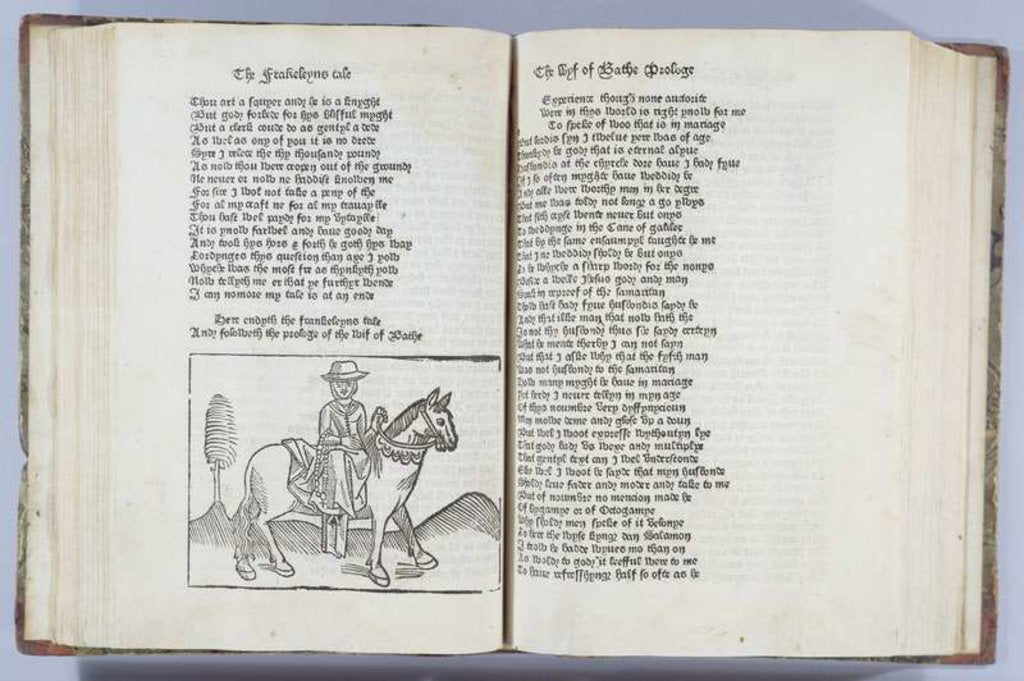 The Frankeleyns tale
Thou art a squyer and he is a knyght
But god forbede for hys blisful myght
But a clerk coude do as gentyl a dede
As wel as ony of you it is no drede
Syre I relece the thy thousand pound
As now thou were cropen out of the ground
Ne neuer er now ne haddist knowen me
For sire I wol not take a peny of the
For al my craft ne for al my trauaylle
Thou hast wel payd for my vytaylle
It is ynow farwel and haue good day
And took hys hors & forth he goth hys way
Lordynges thys question than axe I yow
Whyche was the most fre as thynkyth yow
Now tellyth me er that ye further wende
I can nomore my tale is at an ende
Here endyth the frankeleyns tale
And foloweth the prologe of the wif of Bathe
The wyf of Bathe Prologe
Experience though none auctorite
Were in thys world is right ynow for me
To speke of woo that is in mariage
syn I twelue yere was of age
be god that is eternal alyue
at the chyrche dore haue I had fyue
I so often myght haue weddid be
And alle were worthy men in her degre
But me was told not longe a go ywys
That sith cryst wente neuer but onys
To weddynge in the Cane of galilee
That by the same ensaumpyl taught he me
That I ne weddid shold be but onys
he whyche a sharp word for the nonys
Beside a welle Jhesus god and man
in repreef of the samaritan
Thow hast had fyue husbondis sayd he
And that ilke man that now hath the
Is not thy husbond thus he sayd certeyn
What he mente therby I can not sayn
But that I aske why that the fyfth man
Was not husbond to the samaritan
How many myght he haue in mariage
Yet herd I neuer tellyn in myn age
Of thys noumbre very dyffynycioun
Men mowe deme and glose vp a doun
But wel I woot expresse wythoutyn lye
That god bad vs wexe and multiplye
That gentyl text can I wel vnderstonde
Eke wel I woot he sayde that myn husbonde
Shold leue fader and moder and take to me
But of noumbre no mencion made he
Of bygamye or of Octogamye
Why shold men speke of it velonye
Lo here the wyse kynge dan Salamon
I trow he hadde wyues mo than on
As wold to god it leefful were to me
To haue refresshyng half so ofte as he